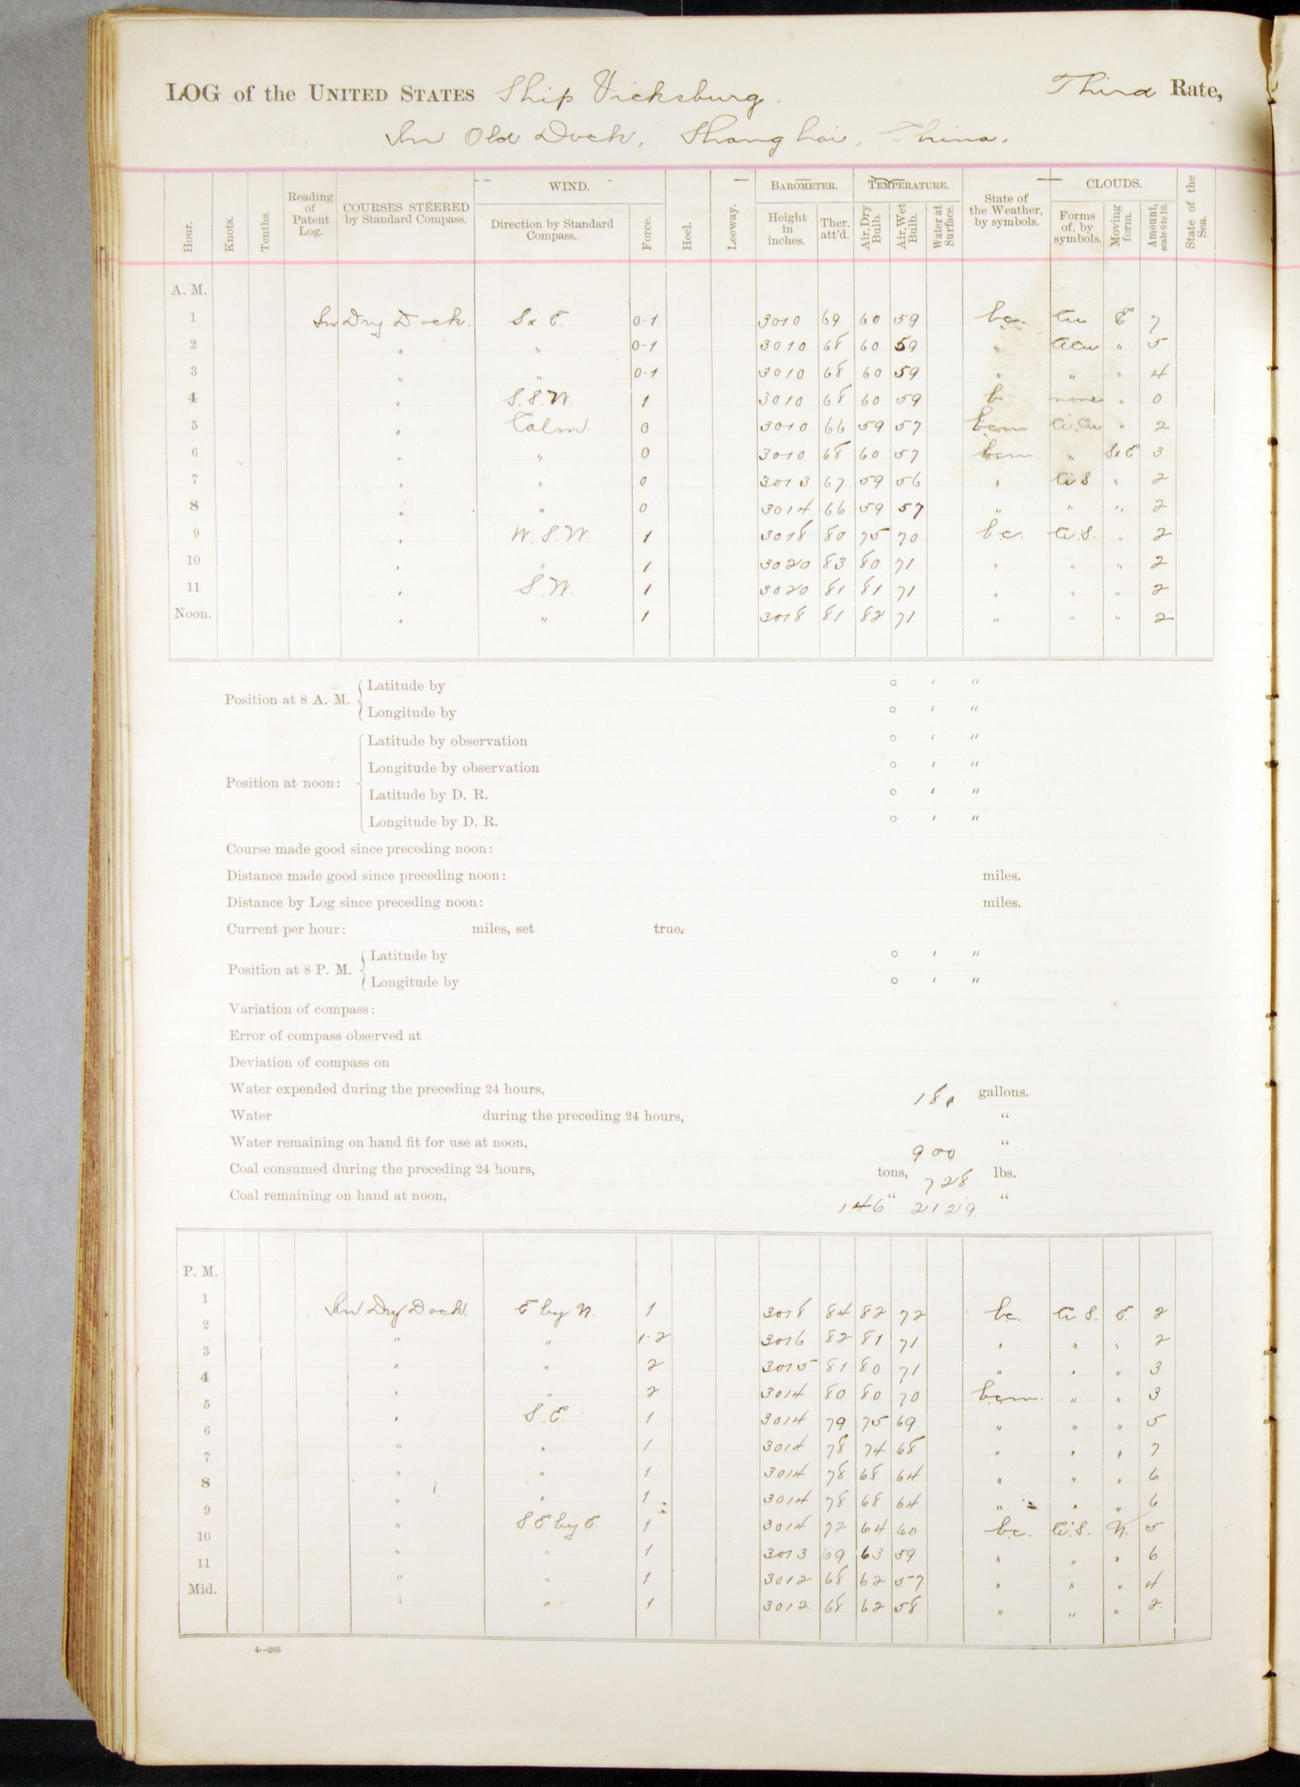 LOG of the UNITED STATES Ship Vicksburg. Third Rate,
In Old Dock, Shanghai, China.
Hour. Knots. Tenths. Reading of Patent Log. COURSES STEERED by Standard Compass. WIND. Direction by Standard Compass. Force. Heel. Leeway. BAROMETER. Height in inches. Ther. att'd. TEMPERATURE. Air, Dry Bulb. Air, Wet Bulb. Water at Surface. State of the Weather, by symbols. CLOUDS. Forms of, by symbols. Moving form. Amount, scale 0 to 10. State of the Sea.
A. M.
1 In Dry Dock. S x E. 0-1 3010 69 60 59 bc. Cu E 7
2 " " 0-1 3010 68 60 59 " " 5
3 " " 0-1 3010 68 60 59 " " " 4
4 " S.S.W. 1 3010 68 60 59 b none " 0
5 " Calm. 0 3010 66 59 57 bcm Ci.Cu " 2
6 " " 0 3010 68 60 57 bcm " SxE 3
7 " " 0 3013 67 59 56 " Ci S " 2
8 " " 0 3014 66 59 57 " " " 2
9 " W.S.W. 1 3018 80 75 70 b.c. Ci.S. " 2
10 " " 1 3020 83 80 71 " " " 2
11 " S.W. 1 3020 81 81 71 " " " 2
Noon. " " 1 3018 81 82 71 " " " 2
Position at 8 A. M. Latitude by ° ' "
Longitude by ° ' "
Position at noon: Latitude by observation ° ' "
Longitude by observation ° ' "
Latitude by D. R. ° ' "
Longitude by D. R. ° ' "
Course made good since preceding noon:
Distance made good since preceding noon: miles.
Distance by Log since preceding noon: miles.
Current per hour: miles, set true.
Position at 8 P. M. Latitude by ° ' "
Longitude by ° ' "
Variation of compass:
Error of compass observed at
Deviation of compass on
Water expended during the preceding 24 hours, 180 gallons.
Water during the preceding 24 hours, "
Water remaining on hand fit for use at noon, 900 "
Coal consumed during the preceding 24 hours, tons, 728 lbs.
Coal remaining on hand at noon, 146 " 2129 "
P. M.
1 In Dry Dock. E by N. 1 3018 84 82 72 bc. Ci S. E. 2
2 " " 1-2 3016 82 81 71 " " " 2
3 " " 2 3015 81 80 71 " " " 3
4 " " 2 3014 80 80 70 bcm. " " 3
5 " S.E. 1 3014 79 75 69 " " " 5
6 " " 1 3014 78 74 68 " " " 7
7 " " 1 3014 78 68 64 " " " 6
8 " " 1 3014 78 68 64 " " " 6
9 " S E by E. 1 3014 72 64 60 bc. Ci.S. N. 5
10 " " 1 3013 69 63 59 " " " 6
11 " " 1 3012 68 62 57 " " " 4
Mid. " " 1 3012 68 62 58 " " " 2
4—265